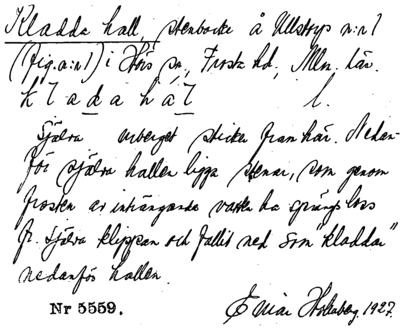 Kladda hall, stenbacke å Ullstorp n:r 1
(fig. a:n 1) i Hörs sn, Frosta hd, Mlm. län.
k l a d a h a l l.
Själva urberget sticker fram här. Nedan-
för själva hallen ligga stenar, som genom
frosten av inträngande vatten ha sprungit loss
fr. själva klippan och fallit ned som "kladdar"
nedanför hallen.
Nr 5559. Einar Holmberg. 1927.